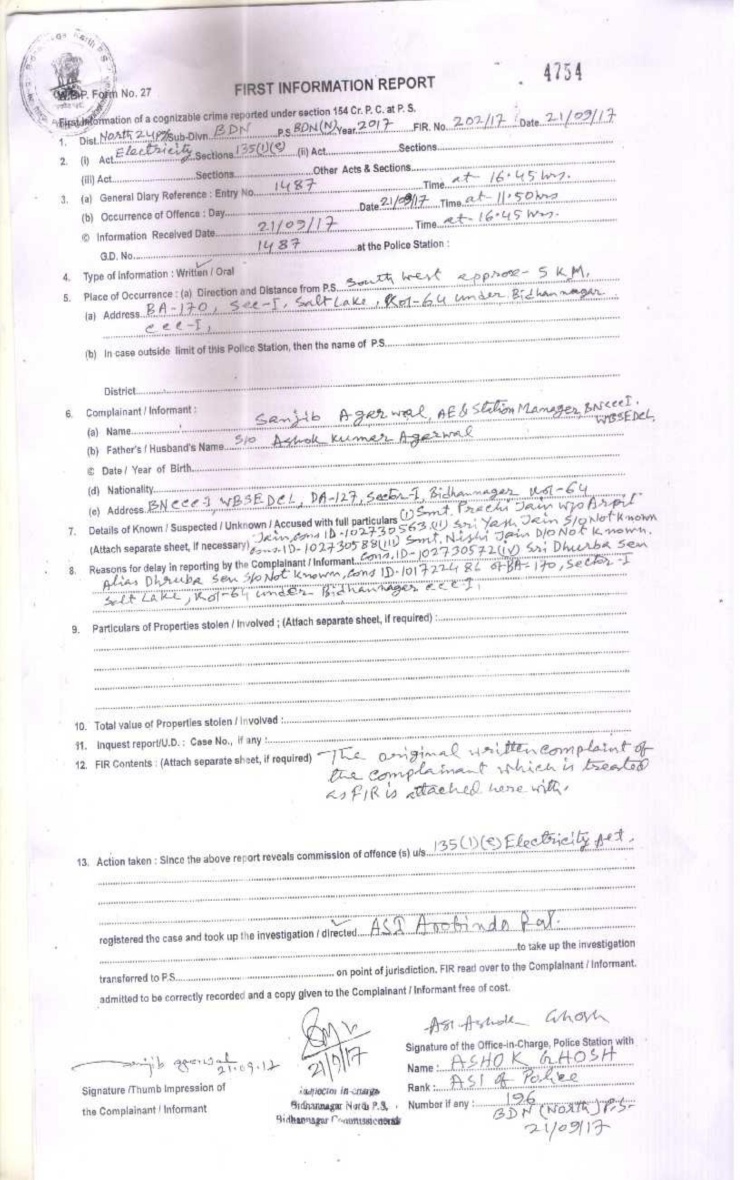 4754
W.B.P. Form No. 27
FIRST INFORMATION REPORT
First Information of a cognizable crime reported under section 154 Cr. P. C. at P. S.
1. Dist. North 24 Pgs Sub-Divn. BDN P.S. BDN(N) Year 2017 FIR. No. 202/17 Date 21/09/17
2. (i) Act Electricity Sections 135(1)(e) (ii) Act Sections
(iii) Act Sections Other Acts & Sections
3. (a) General Diary Reference : Entry No. 1487 Time at 16.45 hrs.
(b) Occurrence of Offence : Day Date 21/09/17 Time at 11.50 hrs
© Information Received Date 21/09/17 Time at 16.45 hrs.
G.D. No. 1487 at the Police Station :
4. Type of information : Written / Oral
5. Place of Occurrence : (a) Direction and Distance from P.S. South West approx- 5 KM.
(a) Address BA-170, Sec-I, Salt Lake, Kol-64 under Bidhannagar
ccc-I,
(b) In case outside limit of this Police Station, then the name of P.S.
District
6. Complainant / Informant :
(a) Name Sanjib Agarwal, AE & Station Manager, BNccc I.
WBSEDCL,
(b) Father's / Husband's Name S/o Ashok Kumar Agarwal
© Date / Year of Birth
(d) Nationality
(e) Address BNccc-I WBSEDCL, DA-127, Sector-I, Bidhannagar Kol-64
7. Details of Known / Suspected / Unknown / Accused with full particulars (I) Smt. Prachi Jain W/o Arpit
Jain, cons ID-102730563 (II) Sri Yash Jain S/o Not Known
(Attach separate sheet, if necessary) cons. ID-102730588 (III) Smt. Nishi Jain D/o Not Known.
8. Reasons for delay in reporting by the Complainant / Informant cons. ID-102730572 (IV) Sri Dhurba Sen
Alias Dhruba Sen S/o Not Known, cons ID-101722486 of BA-170, Sector-I
Salt Lake, Kol-64 under Bidhannagar ccc-I,
9. Particulars of Properties stolen / Involved ; (Attach separate sheet, if required) :
10. Total value of Properties stolen / Involved :
11. Inquest report/U.D. : Case No., if any :
12. FIR Contents : (Attach separate sheet, if required) The original written complaint of
the complainant which is treated
as FIR is attached here with.
13. Action taken : Since the above report reveals commission of offence (s) u/s 135(1)(e) Electricity Act.
registered the case and took up the investigation / directed ASI Arobindo
to take up the investigation
transferred to P.S. on point of jurisdiction, FIR read over to the Complainant / Informant.
admitted to be correctly recorded and a copy given to the Complainant / Informant free of cost.
ASI Ashok Ghosh
21/9/17
Signature of the Office-in-Charge, Police Station with
Sanjib Agarwal
21.09.17
Name : ASHOK GHOSH
Signature /Thumb Impression of
Inspector in-charge
Rank : ASI of Police
the Complainant / Informant
Bidhannagar North P.S.
Number if any : 196
Bidhannagar Commissionerate
BDN (North) P.S-
21/09/17